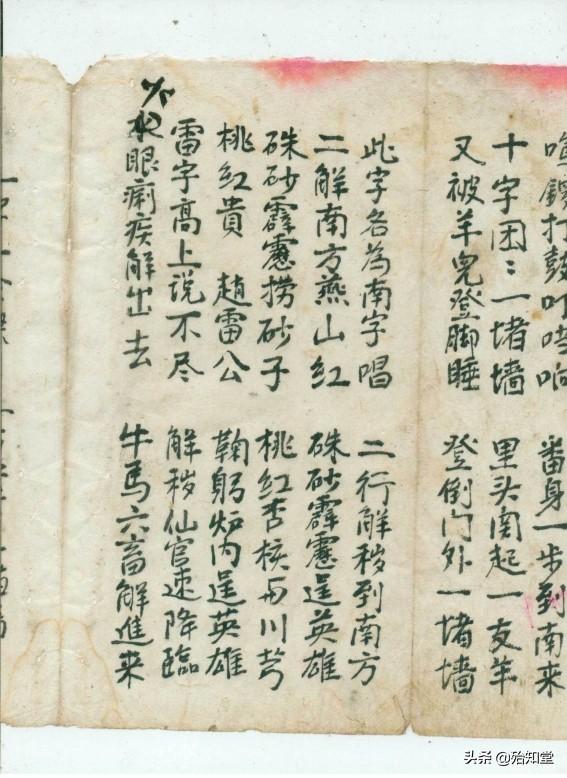 打鼓叮响 番身一步到南来
十字困〻一堵墙 里头南起一友羊
又被羊児登脚睡 登倒门外一堵墙
此字名为南字唱 二行解秽到南方
二解南方燕山红 硃砂霹靂逞英雄
硃砂霹靂捞砂子 桃红杏核与川芎
桃红贵 趙雷公 鞠躬炉内逞英雄
雷字高上说不尽 解秽仙官速降臨
眼痢疾解出去 牛馬六畜解進来
头条 @殆知堂